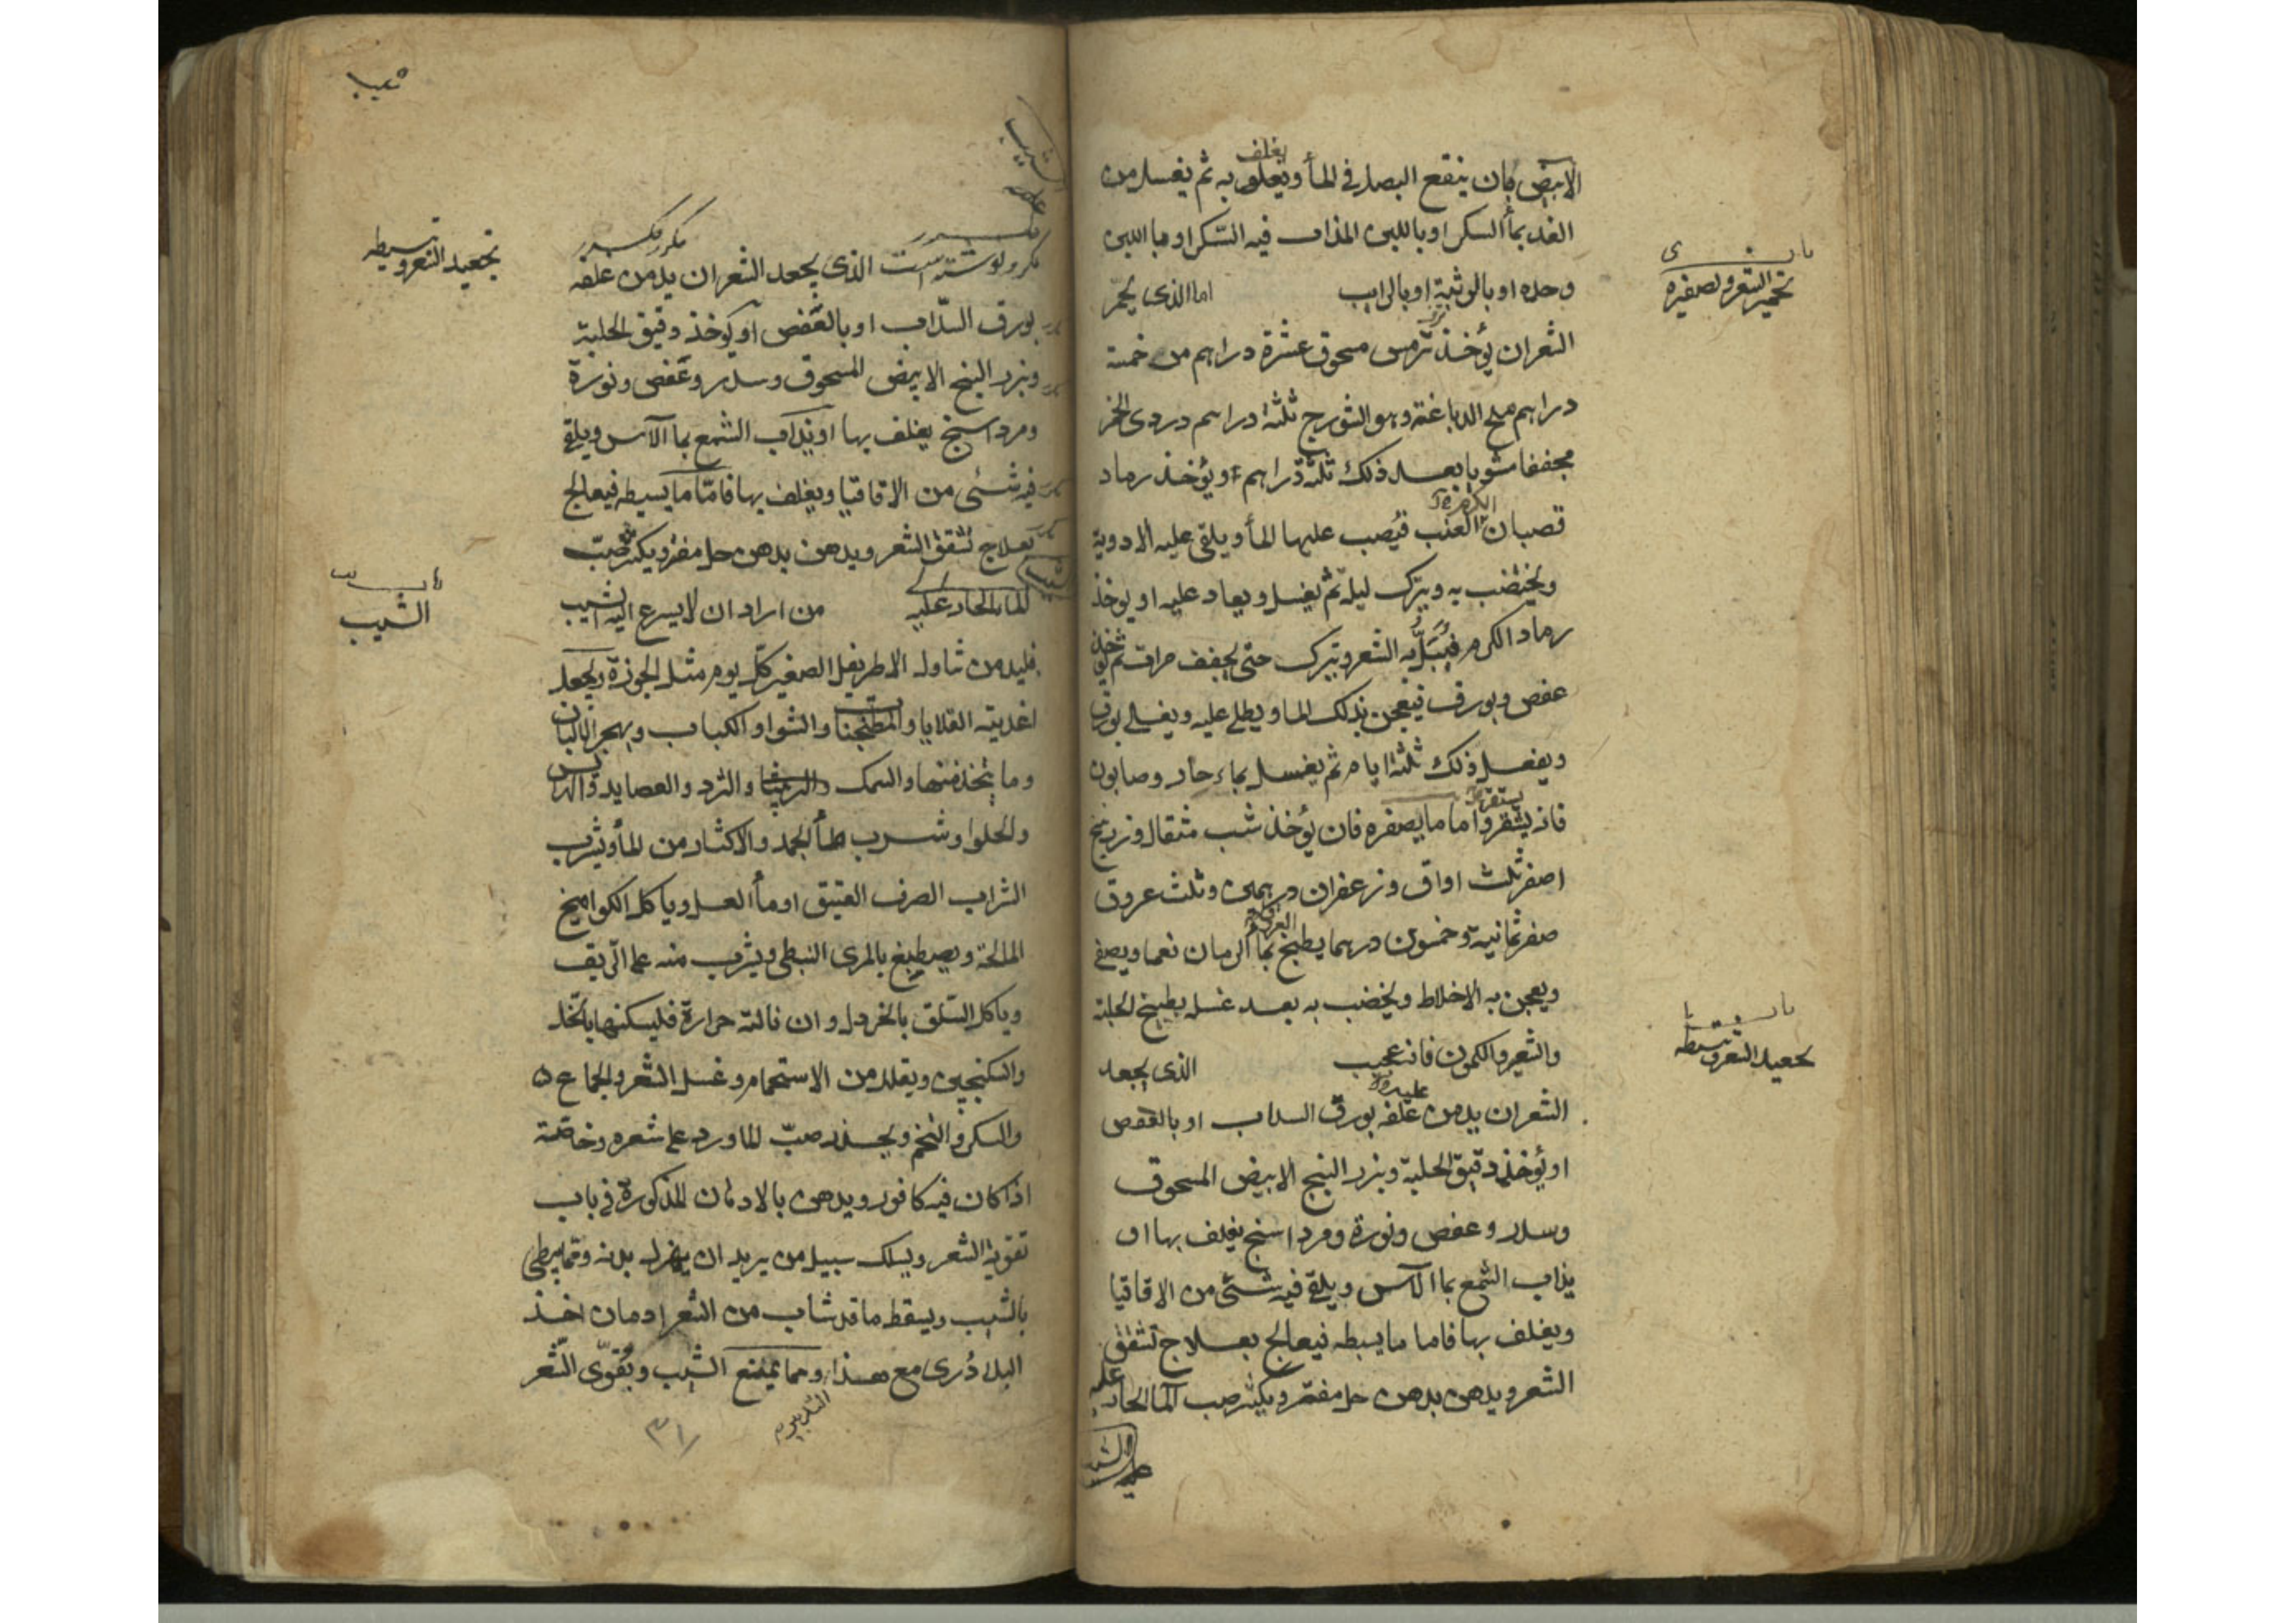 الابيض بان ينقع البصل في الماء ويغلف به ثم يغسل من
الغد بماء السكر او باللبن المذاب فيه السكر او باللبن
وحده او بالوثبة او بالراب اما الذي يحمر
الشعر ان يؤخذ ترمس مسحوق عشرة دراهم من خمسة
دراهم ملح الدباغة وهو الشورج ثلثة دراهم دردي الخمر
مجففا مشويا بعد ذلك ثلثة دراهم او يؤخذ رماد
قصبان العنب فيصب عليها الماء ويلقى عليه الادوية
ويختضب به ويترك ليلة ثم يغسل ويعاد عليه او يوخذ
رماد الكرم فيبل به الشعر ويترك حتى يجفف مرات ثم يؤخذ
عفص وبورق فيعجن بذلك الماء ويطلى عليه ويغسل بورق
ويفعل ذلك ثلثة ايام ثم يغسل بماء حار وصابون
فانه يشقر واما ما يصفره فان يؤخذ شب مثقال وزرنيخ
اصفر ثلث اواق وزعفران درهمين وثلث عروق
صفر ثمانية وخمسون درهما يطبخ بماء الرمان نعما ويصفى
ويعجن به الاخلاط ويخضب به بعد غسله بطبيخ الحلبة
والشعير والكمون فانه عجيب الذي يجعد
الشعر ان يدمن غلفه بورق السداب او بالعفص
او يؤخذ دقيق الحلبة وبزر البنج الابيض المسحوق
وسدر وعفص ونورة ومرداسنج يغلف بها او
يذاب الشمع بماء الآس ويلقى فيه شئ من الاقاقيا
ويغلف بها فاما ما يبسطه فيعالج بعلاج تشقق
الشعر ويدهن بدهن حل مفتر ويكثر صب الماء الحار عليه
تحمير الشعر وتصفيره
تجعيد الشعر وتبسيطه
مكرر مكرر
مكرر نوشته است الذي يجعد الشعر ان يدمن غلفه
بورق السداب او بالعفص او يؤخذ دقيق الحلبة
وبزر البنج الابيض المسحوق وسدر وعفص ونورة
ومرداسنج يغلف بها او يذاب الشمع بماء الآس ويلقى
فيه شئ من الاقاقيا ويغلف بها فاما ما يبسطه فيعالج
بعلاج تشقق الشعر ويدهن بدهن حل مفتر ويكثر صب
الماء الحار عليه من اراد ان لا يسرع اليه الشيب
فليدمن تناول الاطريفل الصغير كل يوم مثل الجوزة ويجعل
اغذيته القلايا والمطجنات والشواء والكباب ويهجر الالبان
وما يتخذ منها والسمك والثرد والعصايد والهرايس
والحلواء وشرب ماء الجمد والاكثار من الماء ويشرب
الشراب الصرف العتيق او ماء العسل وياكل الكواميخ
المالحة ويصطبغ بالمري النبطي ويشرب منه على الريق
وياكل السلق بالخردل وان نالته حرارة فليسكنها بالخل
والسكنجبين ويقلل من الاستحمام وغسل الشعر والجماع
والسكر والتخم ويحذر صب الماورد على شعره وخاصة
اذا كان فيه كافور ويدهن بالادهان المذكورة في باب
تقوية الشعر ويسلك سبيل من يريد ان يهزل بدنه ومما يبطئ
بالشيب ويسقط ما قد شاب من الشعر ادمان اخذ
البلاذري مع هذا ومما يمنع الشيب ويقوي الشعر
التدبير
٣١
تجعيد الشعر وتبسيطه
باب
الشيب